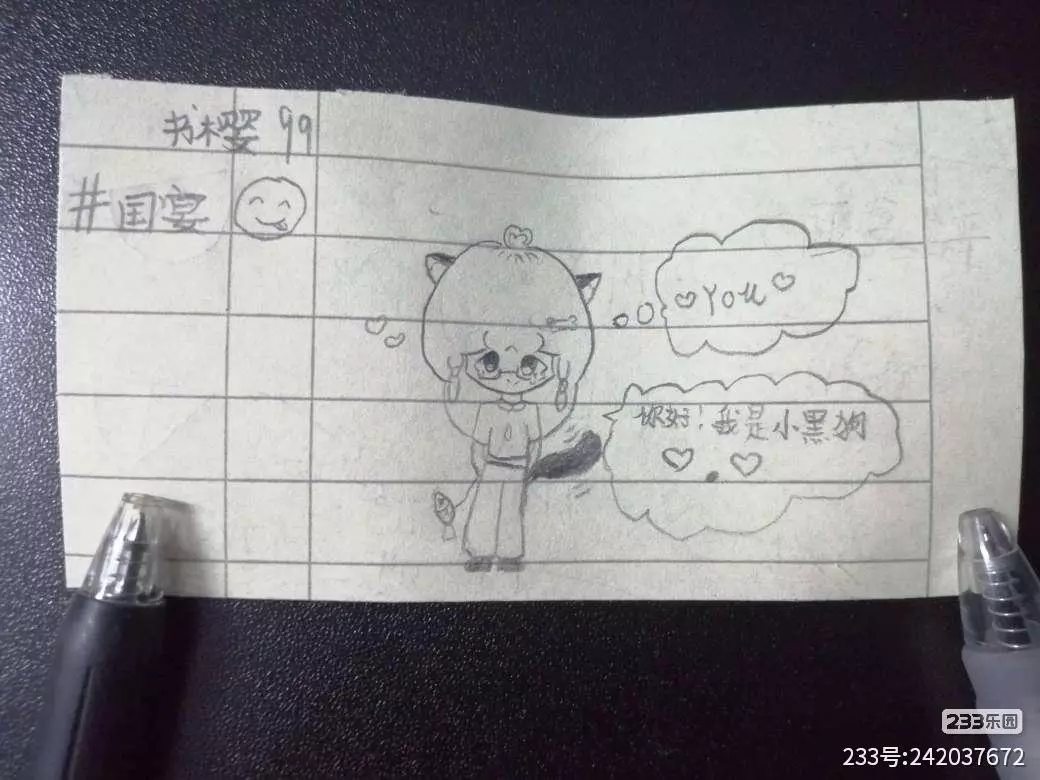 书木婴 99
#国宴
YOU
你好!我是小黑狗
233乐园
233号:242037672